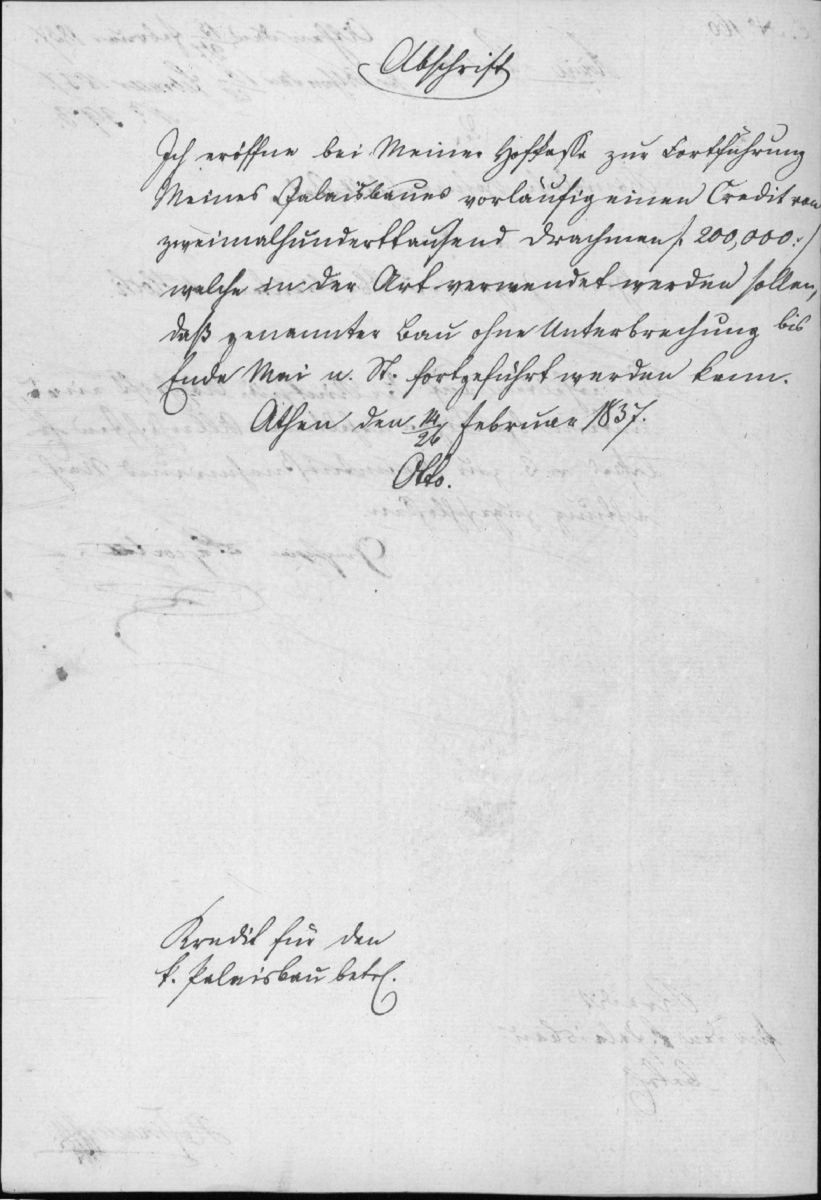 Abschrift
Ich eröffne bei Meiner Hofkasse zur Fortführung
Meines Palaisbaues vorläufig einen Credit von
zweimalhunderttausend Drachmen /: 200,000 :/
welche in der Art verwendet werden sollen,
daß genannter Bau ohne Unterbrechung bis
Ende Mai n. St. fortgeführt werden kann.
Athen den 14/26 Februar 1837.
Otto.
Kredit für den
k. Palaisbau betrf.